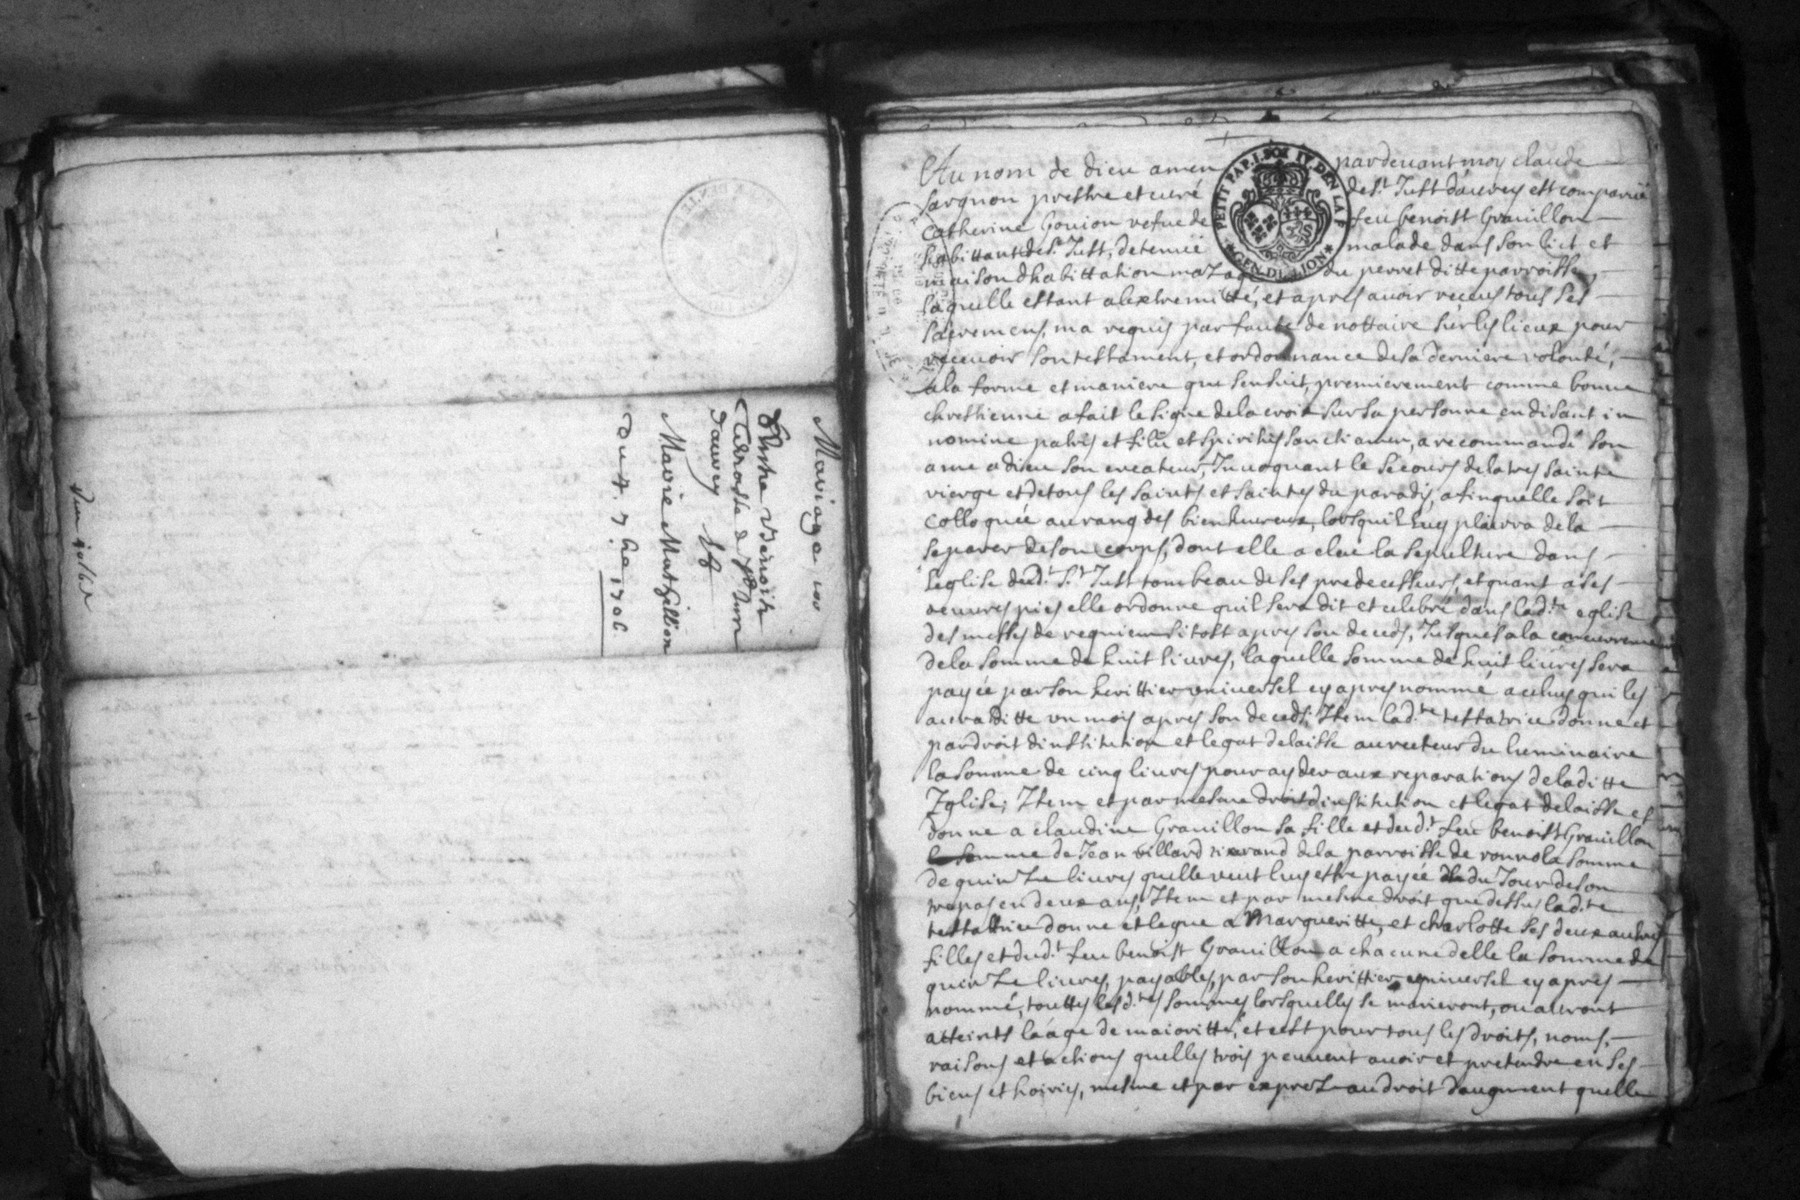 Mariage
Entre Benoite
Terrasse de St Just
Dauvey
Marie Mathillion
Du 4. 7bre 1706
PETIT PAP. I. SOL IV. DEN LA F
GEN. DE LION
Au nom de dieu amen pardevant moy claude
Sargnon prestre et curé de St Just dauvrey est comparüe
Catherine Goujon vefve de feu benoist Gravillon
habittant de St Just, detenüe malade dans son lict et
maison dhabittation du perret ditte parroisse,
laquelle estant alextremitté, et apres avoir receus tous ses
sacremens, ma requis par faute de nottaire sur les lieux pour
recevoir son testament, et ordonnance de sa derniere volonté,
a la forme et maniere que sensuit, premierement comme bonne
chrestienne a fait le signe de la croix sur sa personne en disant in
nomine patris et filii et spiritus sancti amen, a recommandé son
ame a dieu son createur, Invoquant le secours de la tres sainte
vierge et de tous les saints et saintes du paradis, afinquelle soit
colloquée au rang des bienheureux, lorsquil luy plairra de la
separer de son corps, dont elle a eleu la sepulture dans
leglise dud.t S.t Just tombeau de ses predecesseurs, et quant a ses
oeuvres pies elle ordonne quil sera dit et celebré dans lad.te eglise
des messes de requiem sitost apres son deceds, Jusques a la concurrence
de la somme de huit livres, laquelle somme de huit livres sera
payée par son herittier universel cy apres nommé a celuy qui les
aura ditte un mois apres son deceds; Item lad.te testatrice donne et
par droit dinstitution et legat delaisse au recteur du luminaire
la somme de cinq livres pour ayder aux reparations de laditte
Eglise; Item et par mesme droit dinstitution et legat delaisse et
donne a claudine Gravillon sa fille et dud.t feu benoist Gravillon
femme de Jean villard tixerand de la parroisse de ronno la somme
de quinze livres quelle veut luy estre payée du Jour de son
trepas en deux ans; Item et par mesme droit que dessus lad.te
testatrice donne et legue a Margueritte, et charlotte ses deux autres
filles et dud.t feu benoist Gravillon a chacune delle la somme de
quinze livres, payables, par son herittier universel cy apres
nommé, touttes lesd.tes sommes lorsquelles se marieront, ou auront
atteints laage de maioritté, et cest pour tous les droits, noms,
raisons et actions quelles trois peuvent avoir et pretendre en ses
biens et hoiries, mesme et par exprez au droit daugment quelle